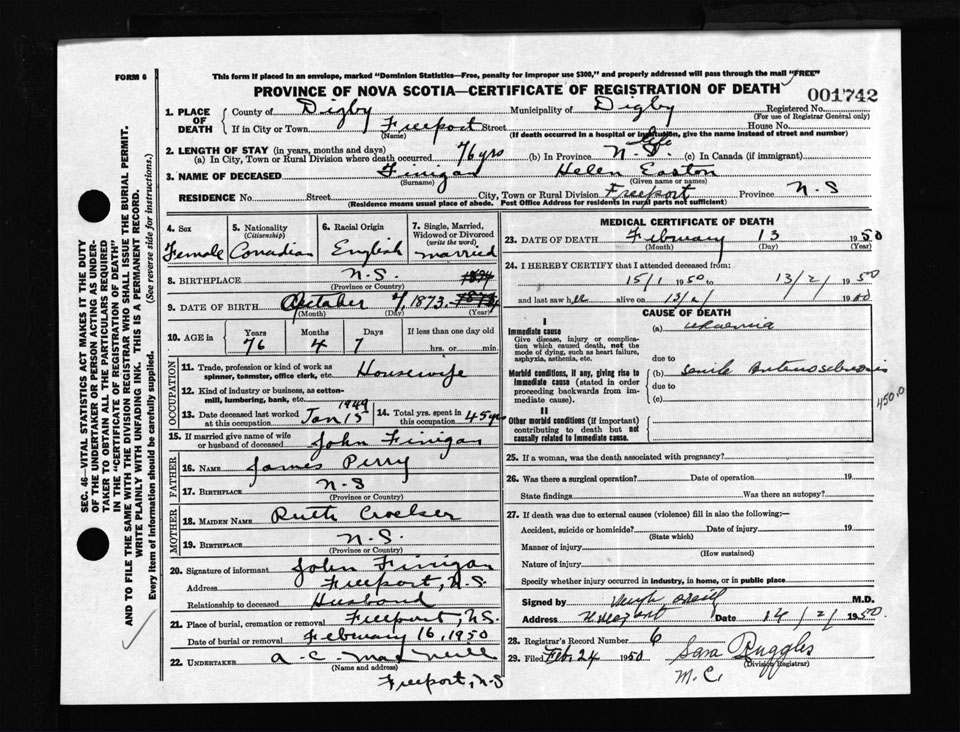 FORM 6
This form if placed in an envelope, marked "Dominion Statistics—Free, penalty for improper use $300," and properly addressed will pass through the mail "FREE"
PROVINCE OF NOVA SCOTIA—CERTIFICATE OF REGISTRATION OF DEATH
001742
1. PLACE OF DEATH County of Digby Municipality of Digby Registered No.
(For use of Registrar General only)
If in City or Town Freeport Street House No.
(Name) (If death occurred in a hospital or institution, give the name instead of street and number)
2. LENGTH OF STAY (in years, months and days) life
(a) In City, Town or Rural Division where death occurred 76 yrs (b) In Province N.S. (c) In Canada (if immigrant)
3. NAME OF DECEASED Finigan Helen Easton
(Surname) (Given name or names)
RESIDENCE No. Street City, Town or Rural Division Freeport Province N.S
(Residence means usual place of abode. Post Office Address for residents in rural parts not sufficient)
4. Sex 5. Nationality (Citizenship) 6. Racial Origin 7. Single, Married, Widowed or Divorced (write the word)
Female Canadian English married
8. BIRTHPLACE N.S.
(Province or Country)
9. DATE OF BIRTH October 1873
(Month) (Day) (Year)
10. AGE in Years Months Days If less than one day old
76 4 7 hrs. or min.
OCCUPATION
11. Trade, profession or kind of work as spinner, teamster, office clerk, etc. Housewife
12. Kind of industry or business, as cotton-mill, lumbering, bank, etc.
13. Date deceased last worked at this occupation Jan 15 1949 14. Total yrs. spent in this occupation 45 yrs
15. If married give name of wife or husband of deceased John Finigan
FATHER
16. NAME James Perry
17. BIRTHPLACE N.S
(Province or Country)
MOTHER
18. MAIDEN NAME Ruth
19. BIRTHPLACE N.S.
(Province or Country)
20. Signature of informant John Finigan
Address Freeport, N.S.
Relationship to deceased Husband
21. Place of burial, cremation or removal Freeport, N.S.
Date of burial or removal February 16, 1950
22. UNDERTAKER A.C. MacNeill
(Name and address)
Freeport, N.S
MEDICAL CERTIFICATE OF DEATH
23. DATE OF DEATH February 13 1950
(Month) (Day) (Year)
24. I HEREBY CERTIFY that I attended deceased from:
15/1 1950 to 13/2/ 1950
and last saw her alive on 13/2/ 1950
CAUSE OF DEATH
I
Immediate cause (a) uraemia
Give disease, injury or complication which caused death, not the mode of dying, such as heart failure, asphyxia, asthenia, etc.
due to
Morbid conditions, if any, giving rise to immediate cause (stated in order proceeding backwards from immediate cause). (b) senile Arteriosclerosis
due to
(c)
450.0
II
Other morbid conditions (if important) contributing to death but not causally related to immediate cause.
25. If a woman, was the death associated with pregnancy?
26. Was there a surgical operation? Date of operation 19
State findings Was there an autopsy?
27. If death was due to external causes (violence) fill in also the following:—
Accident, suicide or homicide? Date of injury 19
(State which)
Manner of injury
(How sustained)
Nature of injury
Specify whether injury occurred in industry, in home, or in public place
Signed by M.D.
Address Date 14/2/ 1950
28. Registrar's Record Number 6
29. Filed Feb. 24 1950 Sara Ruggles
(Division Registrar)
M.C.
SEC. 46—VITAL STATISTICS ACT MAKES IT THE DUTY
OF THE UNDERTAKER OR PERSON ACTING AS UNDER-
TAKER TO OBTAIN ALL THE PARTICULARS REQUIRED
IN THE "CERTIFICATE OF REGISTRATION OF DEATH"
AND TO FILE THE SAME WITH THE DIVISION REGISTRAR WHO SHALL ISSUE THE BURIAL PERMIT.
WRITE PLAINLY WITH UNFADING INK. THIS IS A PERMANENT RECORD.
Every item of information should be carefully supplied. (See reverse side for instructions.)